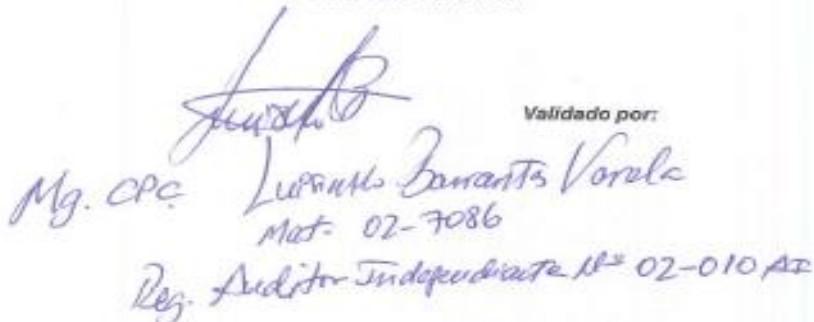 Validado por:
Mg. CPC. Barrantes Varela
Mat. 02-7086
Reg. Auditor Independiente Nº 02-010 AI